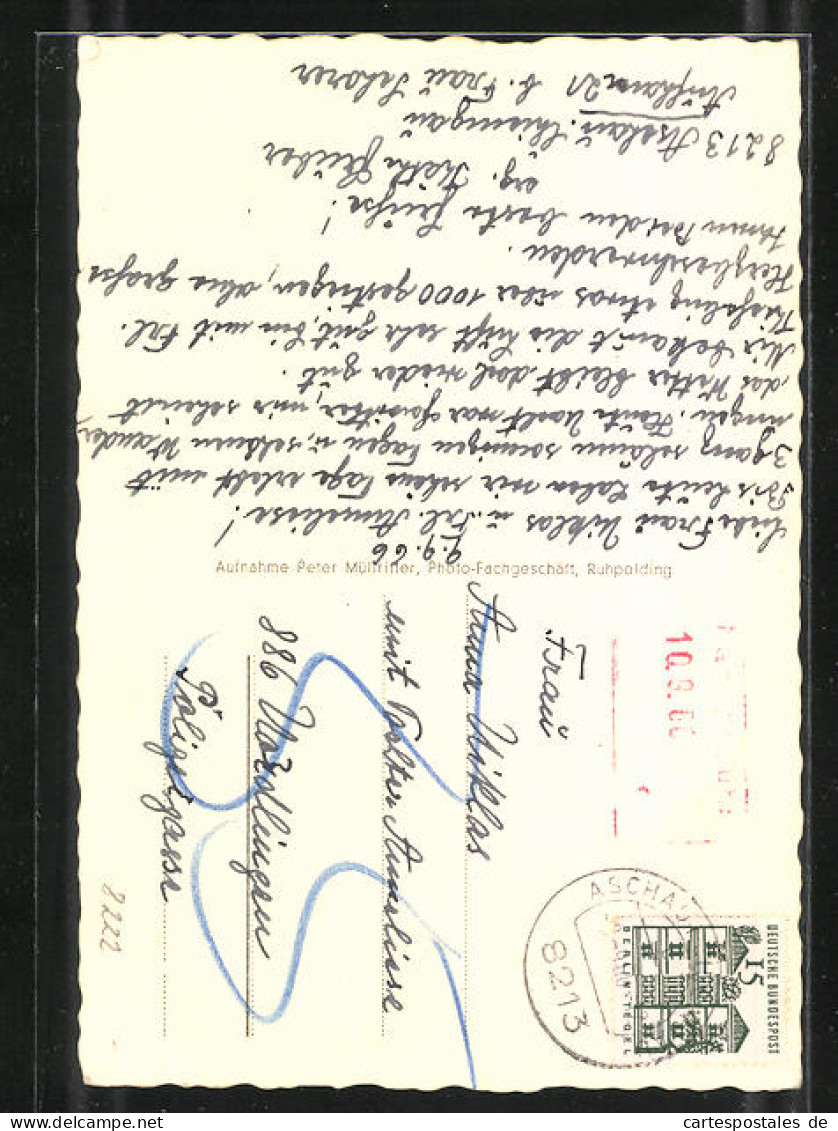 9.9.66
Liebe Frau Niklas u. Frl. Anneliese!
Bis heute haben wir schöne Tage erlebt mit
3 ganz schönen sonnigen Tagen u. schönen Wander
ungen. Heute Nacht war Gewitter, mir scheint
das Wetter bleibt doch wieder gut.
Mir bekommt die Luft sehr gut, bin mit Frl.
etwas über 1000 gestiegen, ohne große
Herzbeschwerden.
Ihnen Beiden beste Grüße!
Ihre Käthe
8213 Aschau. Chiemgau
21 b. Frau Scharer
Aufnahme Peter Müllritter, Photo-Fachgeschäft, Ruhpolding
Frau
Anna Niklas
mit Tochter Anneliese
886 Nördlingen
Polizeigasse
10.9.66
ASCHAU
8213
DEUTSCHE BUNDESPOST
15
BERLIN-TEGEL
8222
cartespostales.de